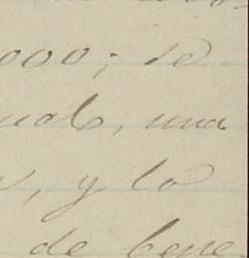 000; se
uals, una
, y la
de bene